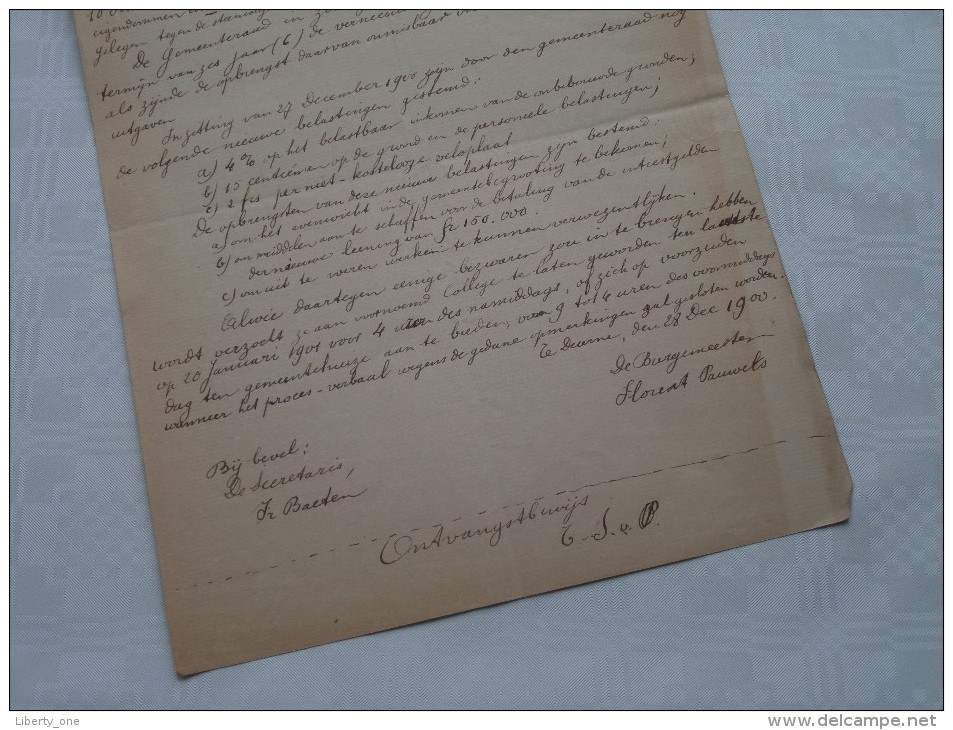 eigendommen
gelegen tegen de steenweg
De Gemeenteraad en
termijn van zes jaar (6) de vernieuw
als zijnde de opbrengst daarvan onmisbaar
uitgaven
In zitting van 27 December 1900 zijn door den gemeenteraad nog
de volgende nieuwe belastingen gestemd:
a) 4% op het belastbaar inkomen van de onbebouwde gronden;
b) 15 centiemen op de grond en de personeele belastingen;
c) 2 frs per niet-kostelooze veloplaat
De opbrengsten van deze nieuwe belastingen zijn bestemd:
a) om het evenwicht in de gemeentebegrooting te bekomen;
b) om middelen aan te schaffen voor de betaling van de intrestgelden
der nieuwe leening van fr 150.000.
c) om uit te voeren werken te kunnen verwezentlijken.
Alwie daartegen eenige bezwaren zou in te brengen hebben
wordt verzocht ze aan voornoemd College te laten geworden ten laatste
op 20 Januari 1901 voor 4 uren des namiddags, of zich op voorzuden
dag ten gemeentehuize aan te bieden, van 9 tot 4 uren des voormiddags
wanneer het proces-verbaal wegens de gedane opmerkingen zal gesloten worden.
Te Deurne, den 28 Dec 1900.
De Burgemeester
Florent Pauwels
Bij bevel:
De Secretaris,
Fr Baeten
Ontvangstbewijs
T. S. v. P.
Liberty_one
http://www.delcampe.net